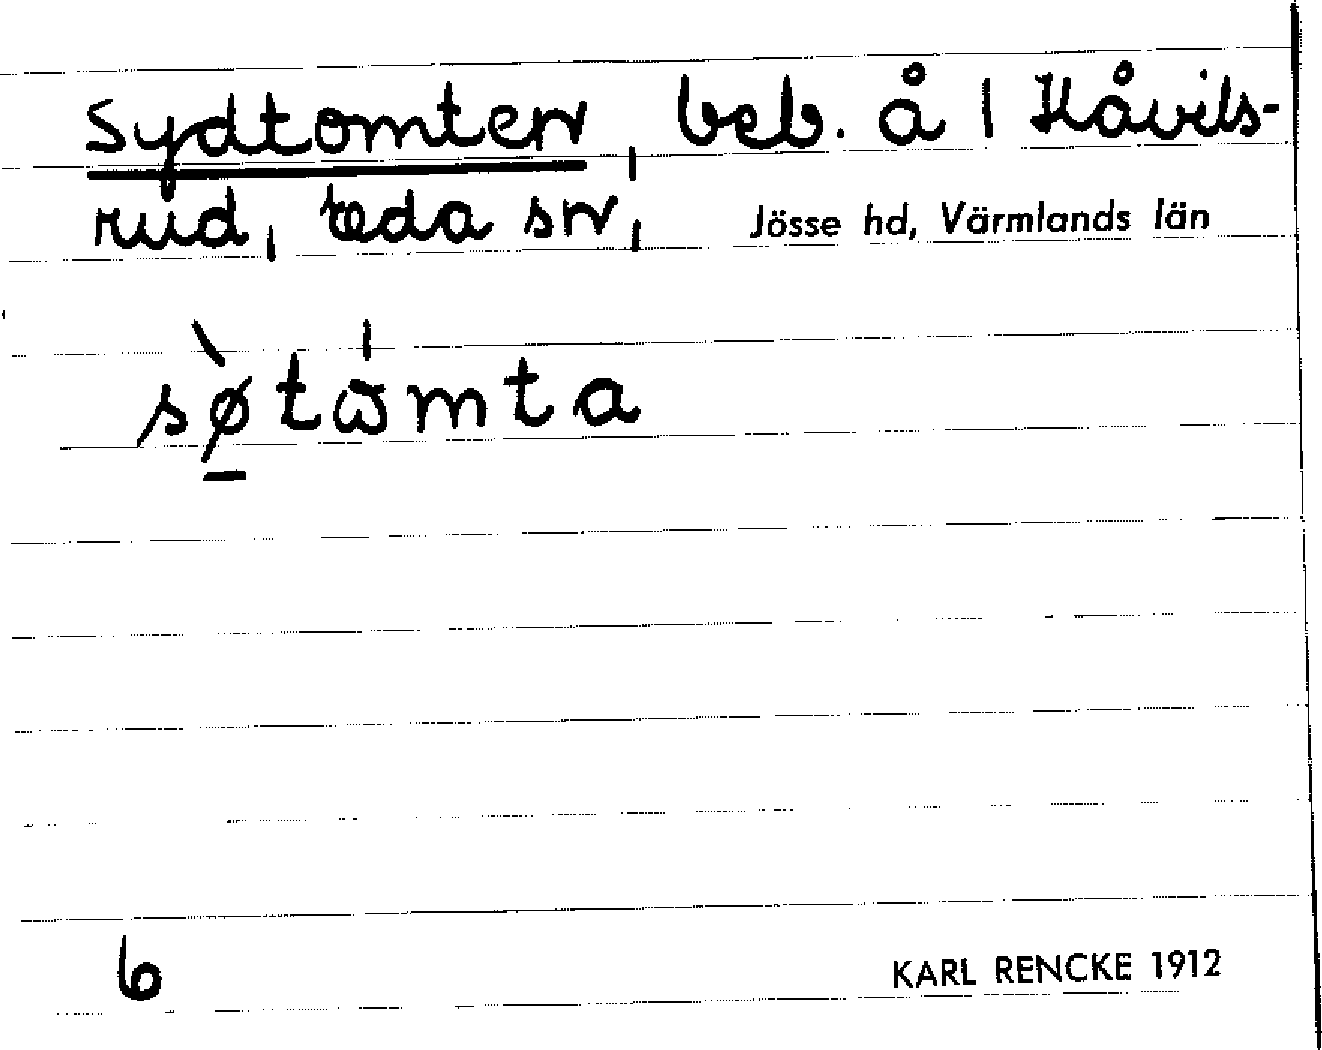 Sydtomten, beb. å 1 Håvils-
rud, Eda sn, Jösse hd, Värmlands län
sø̀tɷ̍mta
6
KARL RENCKE 1912